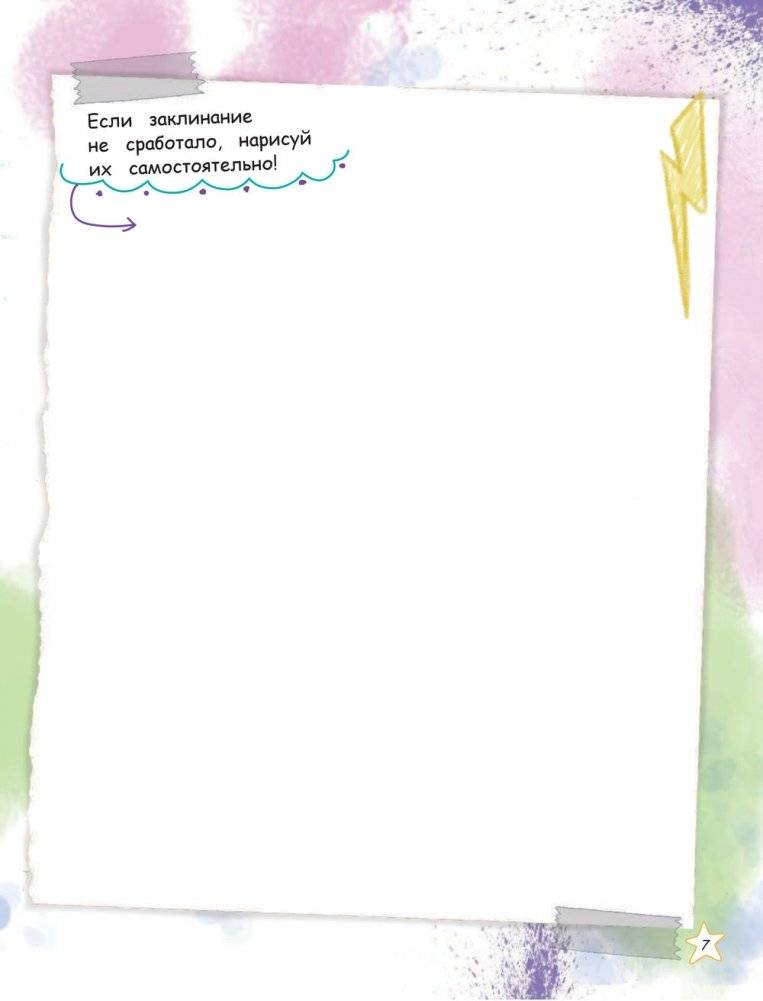 Если заклинание
не сработало, нарисуй
их самостоятельно!
7